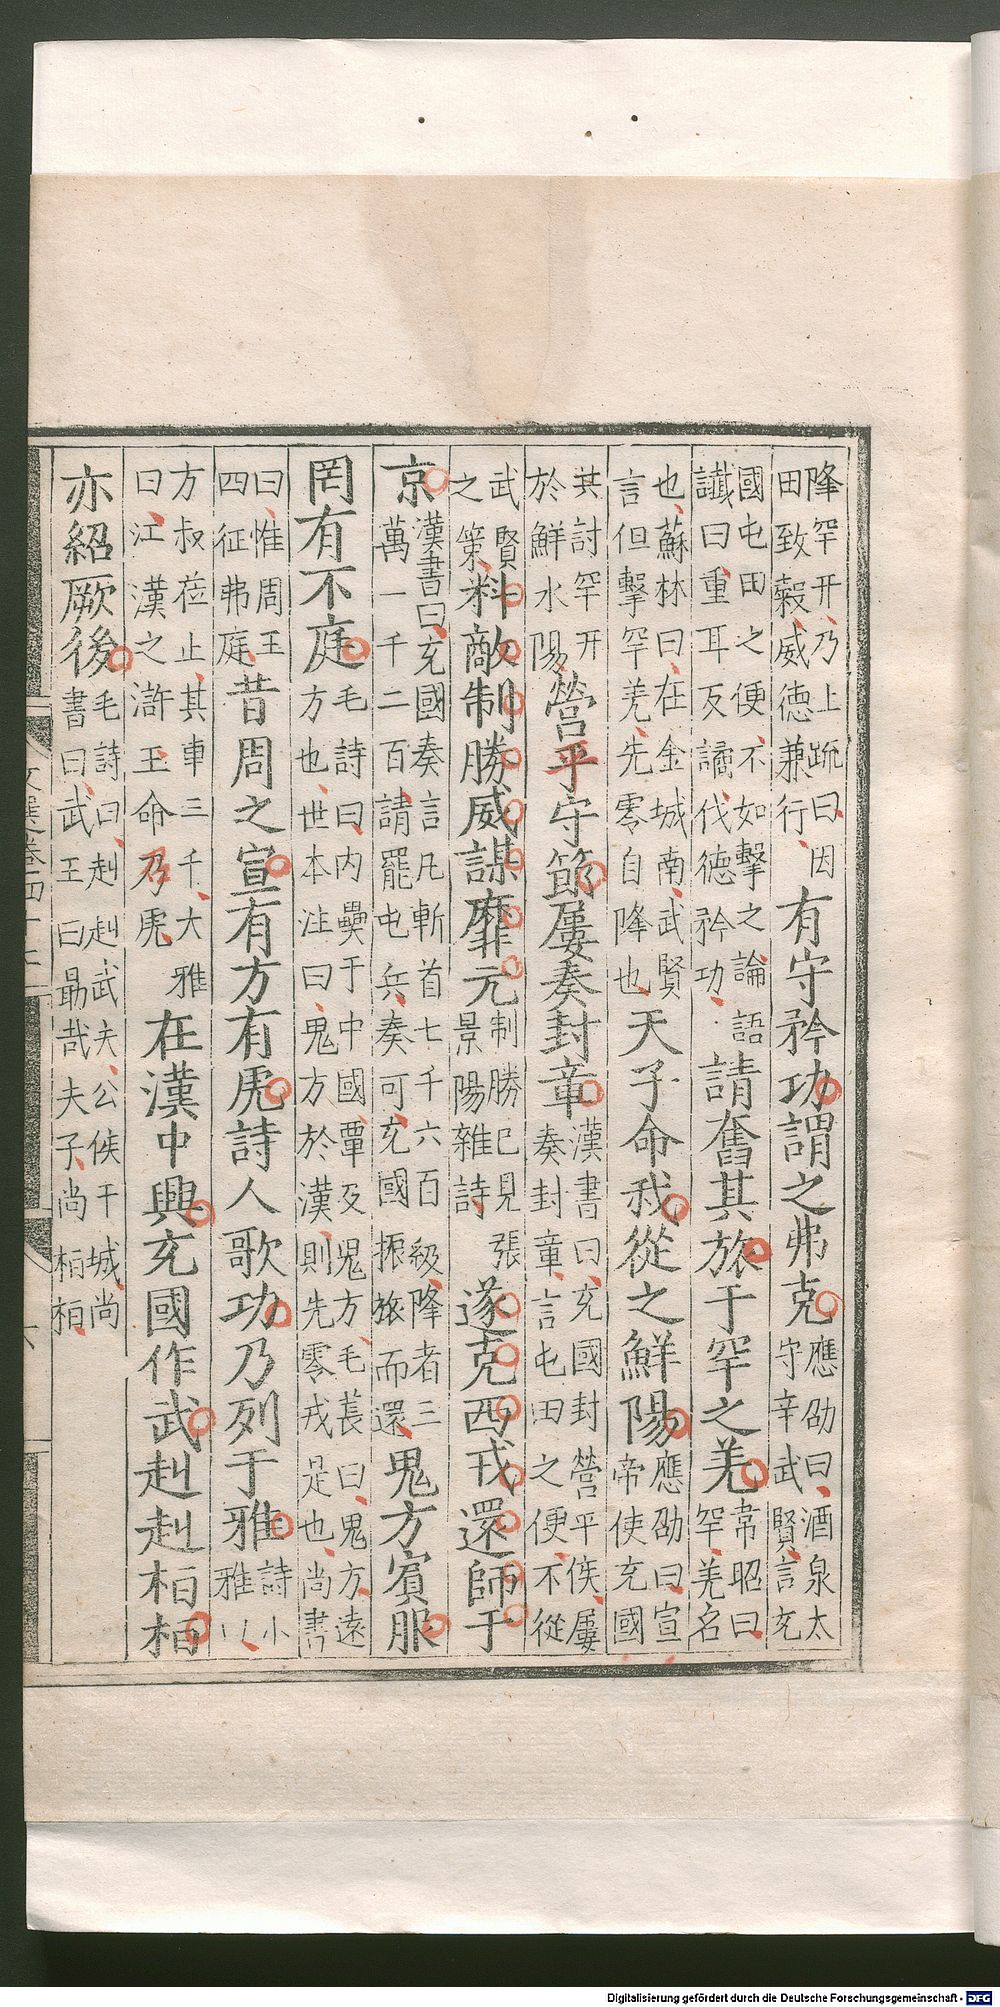 降罕幵乃上疏曰因
田致穀威德兼行
有守矜功謂之弗克
應劭曰酒泉太
守辛武賢言充
國屯田之便不如擊之論語
讖曰重耳反譎伐德矜功
請奮其旅于罕之羌
韋昭曰
罕羌名
也蘇林曰在金城南武賢
言但擊罕羌先零自降也
天子命我從之鮮陽
應劭曰宣
帝使充國
其討罕幵
於鮮水陽
營平守節屢奏封章
漢書曰充國封營平侯屢
奏封章言屯田之便不從
武賢
之策
料敵制勝威謀靡亢
制勝已見張
景陽雜詩
遂克西戎還師于
京
漢書曰充國奏言凡斬首七千六百級降者三
萬一千二百請罷屯兵奏可充國振旅而還
鬼方賓服
罔有不庭
毛詩曰内奰于中國覃及鬼方毛萇曰鬼方遠
方也世本注曰鬼方於漢則先零戎是也尚書
曰惟周王
四征弗庭
昔周之宣有方有虎詩人歌功乃列于雅
詩小
雅以
方叔莅止其車三千大雅
曰江漢之滸王命乃虎
在漢中興充國作武赳赳桓桓
亦紹厥後
毛詩曰赳赳武夫公侯干城尚
書曰武王曰勗哉夫子尚桓桓
Digitalisierung gefördert durch die Deutsche Forschungsgemeinschaft - DFG